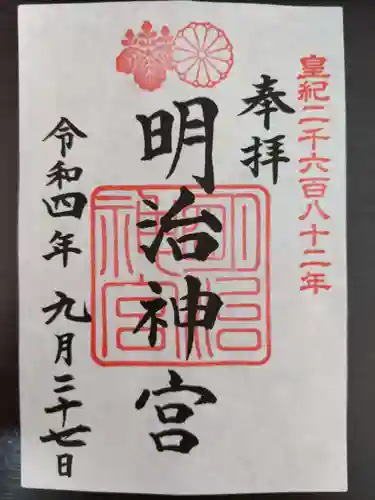 皇紀二千六百八十二年
奉拝
明治神宮
明治神宮
令和四年九月二十七日